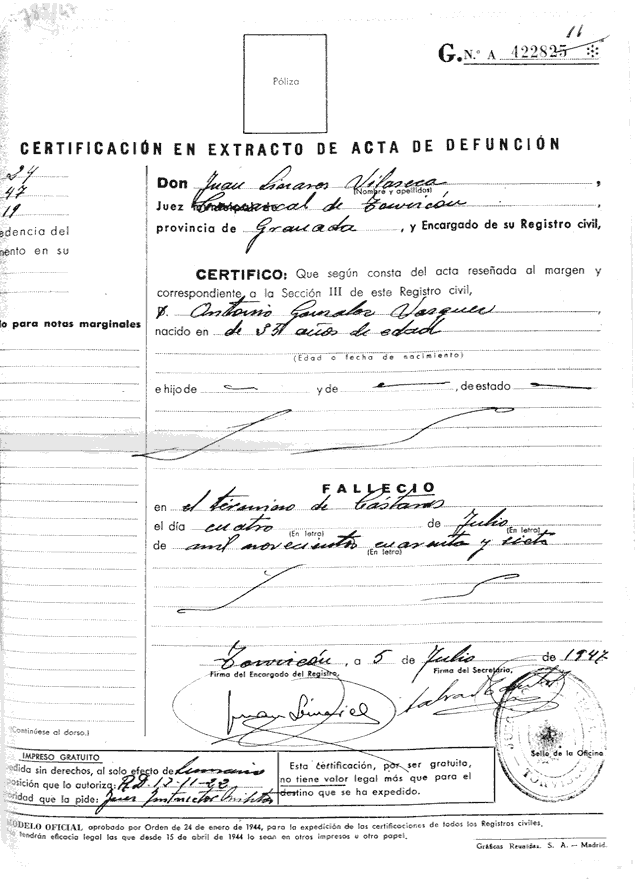 G. N.º A 422825
11
Póliza
CERTIFICACIÓN EN EXTRACTO DE ACTA DE DEFUNCIÓN
24
47
19
edencia del
mento en su
o para notas marginales
(Continúese al dorso.)
Don Juan Linares Vilaseca,
(Nombre y apellidos)
Juez Comarcal de Torvizcón,
provincia de Granada, y Encargado de su Registro civil,
CERTIFICO: Que según consta del acta reseñada al margen y
correspondiente a la Sección III de este Registro civil,
D. Antonio Gonzalez Vasquez
nacido en de años de edad
(Edad o fecha de nacimiento)
e hijo de — y de —, de estado —
FALLECIO
en el término de Cástaras
el día cuatro de Julio
(En letra) (En letra)
de mil novecientos cuarenta y siete
(En letra)
Torvizcón, a 5 de Julio de 1947
Firma del Encargado del Registro, Firma del Secretario,
Juan Linares
Sello de la Oficina
IMPRESO GRATUITO
edida sin derechos, al solo efecto de Sumario
posición que lo autoriza: R.D.
oridad que la pide: Juez Instructor Militar
Esta certificación, por ser gratuita,
no tiene valor legal más que para el
destino que se ha expedido.
MODELO OFICIAL aprobado por Orden de 24 de enero de 1944, para la expedición de las certificaciones de todos los Registros civiles.
o tendrán eficacia legal las que desde 15 de abril de 1944 lo sean en otros impresos u otro papel.
Gráficas Reunidas, S. A. — Madrid.